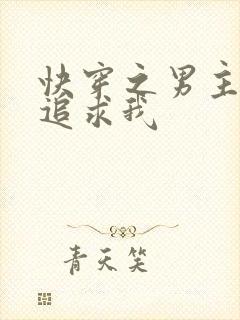 快穿之男主
追求我
青天笑